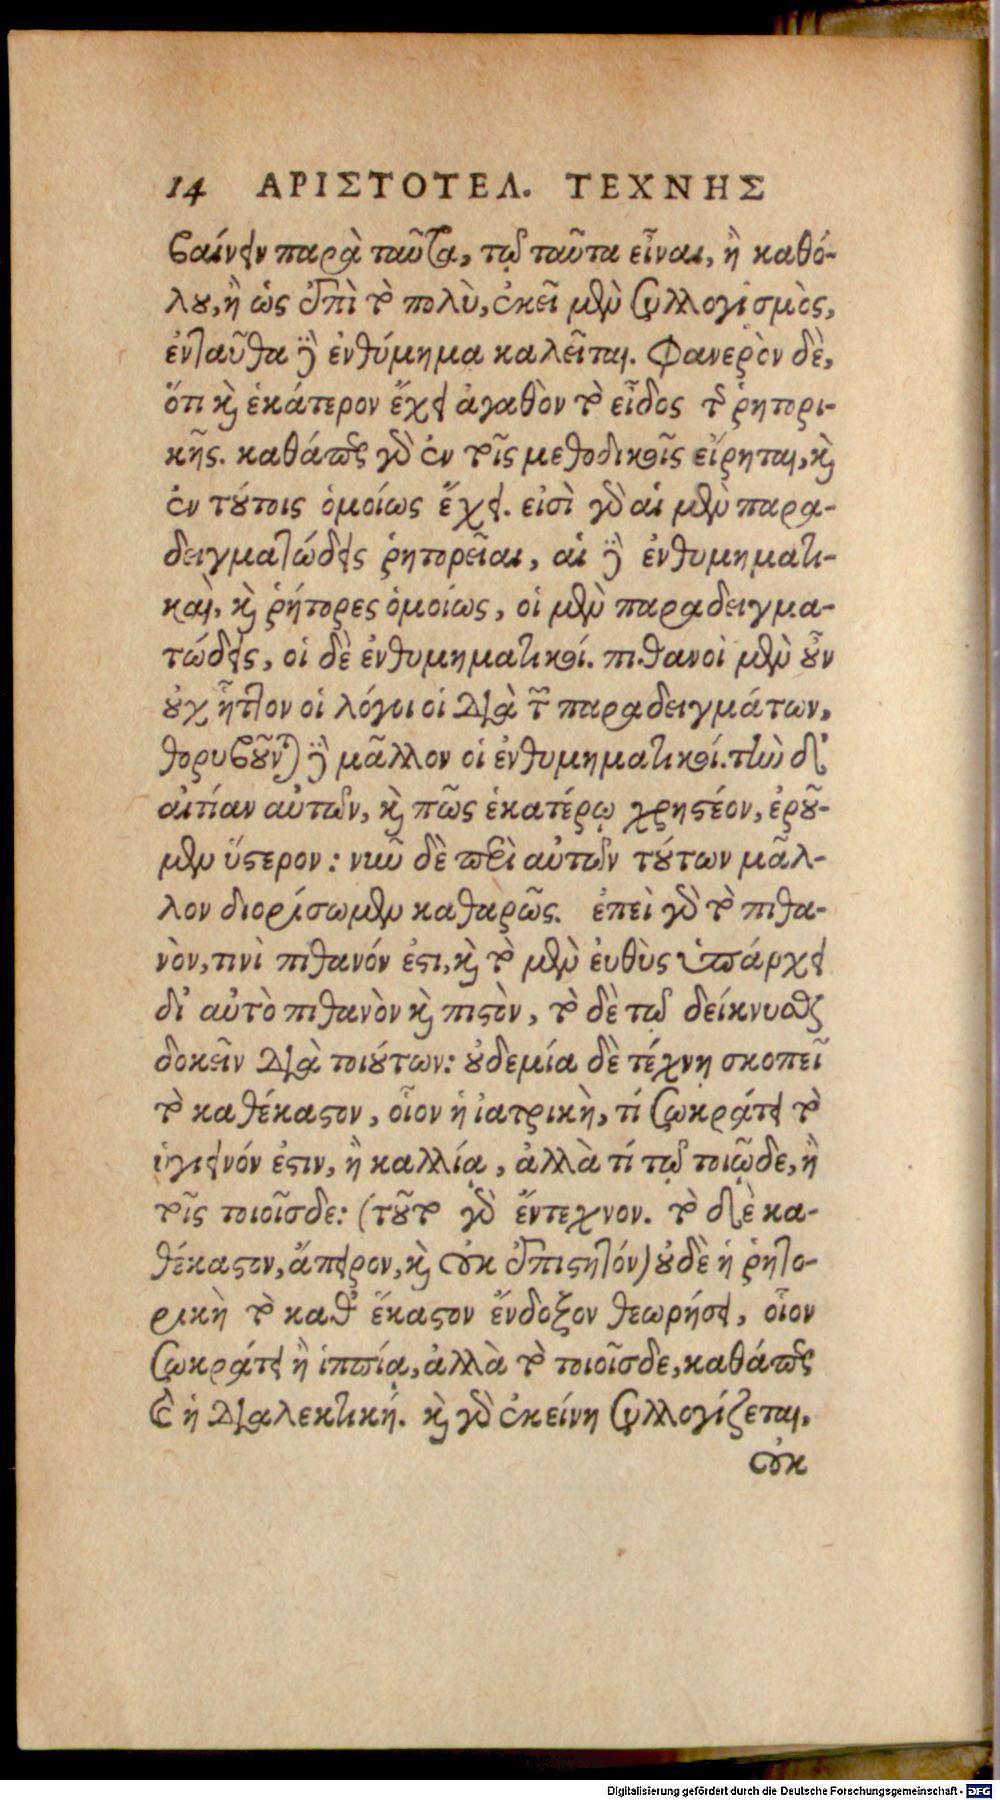 14 ΑΡΙΣΤΟΤΕΛ. ΤΕΧΝΗΣ
βαίνειν παρὰ ταῦτα, τῷ ταῦτα εἶναι, ἢ καθό-
λου, ἢ ὡς ἐπὶ τὸ πολὺ, ἐκεῖ μὲν συλλογισμὸς,
ἐνταῦθα δὲ ἐνθύμημα καλεῖται. Φανερὸν δὲ,
ὅτι καὶ ἑκάτερον ἔχει ἀγαθὸν τὸ εἶδος τῆς ῥητορι-
κῆς. καθάπερ γὰρ ἐν τοῖς μεθοδικοῖς εἴρηται, καὶ
ἐν τούτοις ὁμοίως ἔχει. εἰσὶ γὰρ αἱ μὲν παρα-
δειγματώδεις ῥητορεῖαι, αἱ δὲ ἐνθυμηματι-
καὶ, καὶ ῥήτορες ὁμοίως, οἱ μὲν παραδειγμα-
τώδεις, οἱ δὲ ἐνθυμηματικοί. πιθανοὶ μὲν οὖν
οὐχ ἧττον οἱ λόγοι οἱ διὰ τῶν παραδειγμάτων,
θορυβοῦνται δὲ μᾶλλον οἱ ἐνθυμηματικοί. τὴν δ'
αἰτίαν αὐτῶν, καὶ πῶς ἑκατέρῳ χρηστέον, ἐροῦ-
μεν ὕστερον: νῦν δὲ περὶ αὐτῶν τούτων μᾶλ-
λον διορίσωμεν καθαρῶς. ἐπεὶ γὰρ τὸ πιθα-
νὸν, τινὶ πιθανόν ἐστι, καὶ τὸ μὲν ἐυθὺς ὑπάρχει
δι' αὐτὸ πιθανὸν καὶ πιστὸν, τὸ δὲ τῷ δείκνυσθαι
δοκεῖν διὰ τοιούτων: οὐδεμία δὲ τέχνη σκοπεῖ
τὸ καθέκαστον, οἷον ἡ ἰατρικὴ, τί Σωκράτει τὸ
ὑγιεινόν ἐστιν, ἢ καλλίᾳ, ἀλλὰ τί τῷ τοιῷδε, ἢ
τοῖς τοιοῖσδε: (τοῦτο γὰρ ἔντεχνον. τὸ δὲ κα-
θέκαστον, ἄπειρον, καὶ οὐκ ἐπιστητόν) οὐδὲ ἡ ῥητο-
ρικὴ τὸ καθ' ἕκαστον ἔνδοξον θεωρήσει, οἷον
Σωκράτει ἢ ἱππίᾳ, ἀλλὰ τὸ τοιοῖσδε, καθάπερ
καὶ ἡ διαλεκτική. καὶ γὰρ ἐκείνη συλλογίζεται,
οὐκ
Digitalisierung gefördert durch die Deutsche Forschungsgemeinschaft - DFG